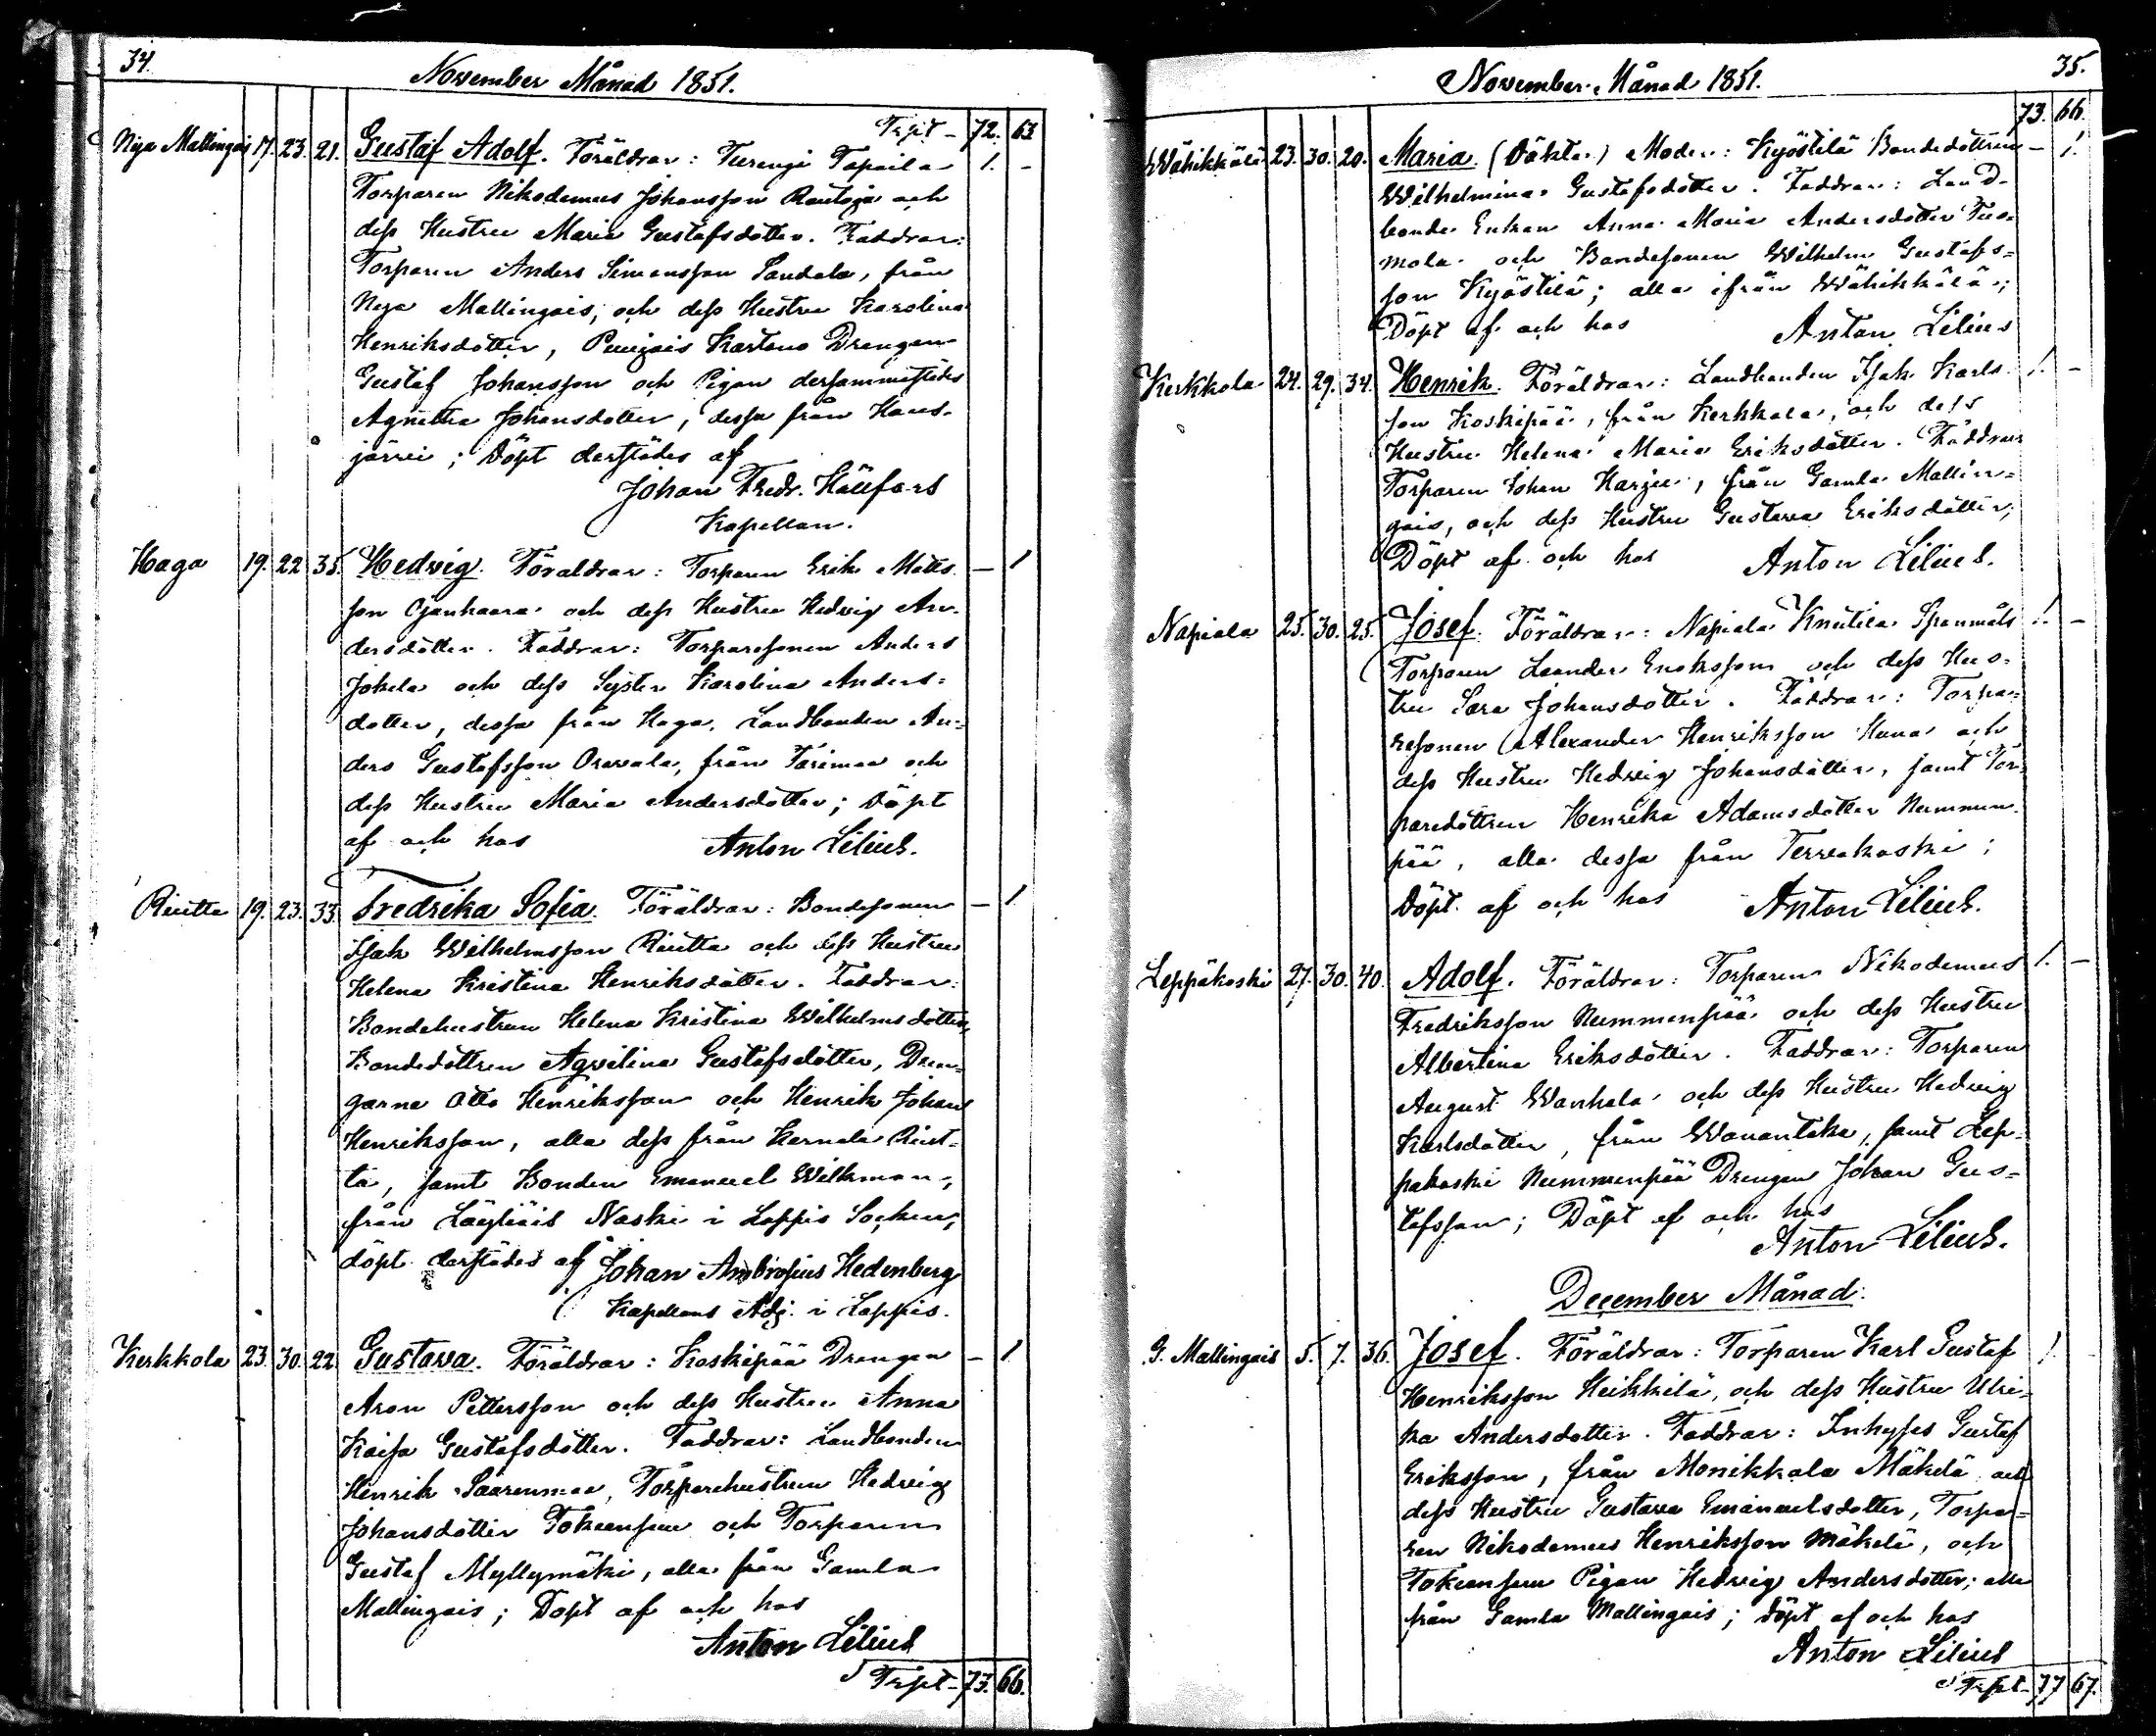 34.
November Månad 1851.
Trpt - 72. 63
Nya Mallingais 17. 23. 21. Gustaf Adolf. Föräldrar: Turengi Tapaila 1. -
Torparen Nikodemus Johansson Rautoja och
dess Hustru Maria Gustafsdotter. Faddrar:
Torparen Anders Simonsson Sandala, från
Nya Mallingais, och dess Hustru Karolina
Henriksdotter, Puujais Kartano Drengen
Gustaf Johansson och Pigan dersammastädes
Agnetha Johansdotter, dessa från Haus-
järvi; Döpt derstädes af
Johan Fredr. Hällfors
Kapellan.
Haga 19. 22 35. Hedvig. Föräldrar: Torparen Erik Matts- - 1
son Ojanhaara och dess Hustru Hedvig An-
dersdotter. Faddrar: Torparesonen Anders
Jokela och dess Syster Karolina Anders=
dotter, dessa från Haga, Landbonden An=
ders Gustafsson Oravala, från Tarimaa och
dess Hustru Maria Andersdotter; Döpt
af och hos Anton Lilius.
Riutta 19. 23. 33. Fredrika Sofia. Föräldrar: Bondesonen - 1
Isak Wilhelmsson Riutta och dess Hustru
Helena Kristina Henriksdotter. Faddrar:
Bondehustrun Helena Kristina Wilhelmsdotter,
Bondedottren Agvilina Gustafsdotter, Dren-
garne Otto Henriksson och Henrik Johan
Henriksson, alla dess från Kernala Riut-
ta, samt Bonden Emanuel Wilkman,
från Läyliäis Naski i Loppis Socken;
döpt derstädes af Johan Ambrosius Hedenberg
Kapellans Adj. i Loppis.
Kerkkola 23. 30. 22. Gustava. Föräldrar: Koskipää Drengen - 1
Aron Pettersson och dess Hustru Anna
Kaisa Gustafsdotter. Faddrar: Landbonden
Henrik Saarenmaa, Torparehustrun Hedvig
Johansdotter Tokeensuu och Torparen
Gustaf Myllymäki, alla från Gamla
Mallingais; Döpt af och hos
Anton Lilius
Trpt - 73. 66.
35.
November Månad 1851.
73. 66.
Wähikkälä 23. 30. 20. Maria. (Oäkta) Moder: Kyöstilä Bondedottren - 1.
Wilhelmina Gustafsdotter. Faddrar: Land-
bonde Enkan Anna Maria Andersdotter Tuo-
mola och Bondesonen Wilhelm Gustafs=
son Kyöstilä; alla ifrån Wähikkälä;
Döpt af och hos Anton Lilius
Kerkkola 24. 29. 34. Henrik. Föräldrar: Landbonden Isak Karls- 1. -
son Koskipää, från Kerkkola, och dess
Hustru Helena Maria Eriksdotter. Faddrar
Torparen Johan Harju, från Gamla Mallin=
gais, och dess Hustru Gustava Eriksdotter;
Döpt af och hos Anton Lilius.
Napiala 25. 30. 25. Josef. Föräldrar: Napiala Knutila Spanmåls 1. -
Torparen Leander Enoksson och dess Hus-
tru Sara Johansdotter. Faddrar: Torpa=
resonen Alexander Henriksson Huna och
dess Hustru Hedvig Johansdotter, samt Tor-
paredottren Henrika Adamsdotter Nummen-
pää, alla dessa från Tervakoski;
Döpt af och hos Anton Lilius.
Leppäkoski 27. 30. 40. Adolf. Föräldrar: Torparen Nikodemus 1. -
Fredriksson Nummenpää och dess Hustru
Albertina Eriksdotter. Faddrar: Torparen
August Wanhala och dess Hustru Hedvig
Karlsdotter, från Wanantaka, samt Lep-
pakoski Nummenpää Drengen Johan Gus-
tafsson; Döpt af och hos
Anton Lilius.
December Månad.
G. Mallingais 5. 7. 36. Josef. Föräldrar: Torparen Karl Gustaf 1.
Henriksson Heikkilä, och dess Hustru Ulri-
ka Andersdotter. Faddrar: Inhyses Gustaf
Eriksson, från Monikkala Mäkelä och
dess Hustru Gustava Emanuelsdotter, Torpa=
ren Nikodemus Henriksson Mäkelä, och
Tokeensuu Pigan Hedvig Andersdotter; alla
från Gamla Mallingais; döpt af och hos
Anton Lilius
Trpt - 77 67.